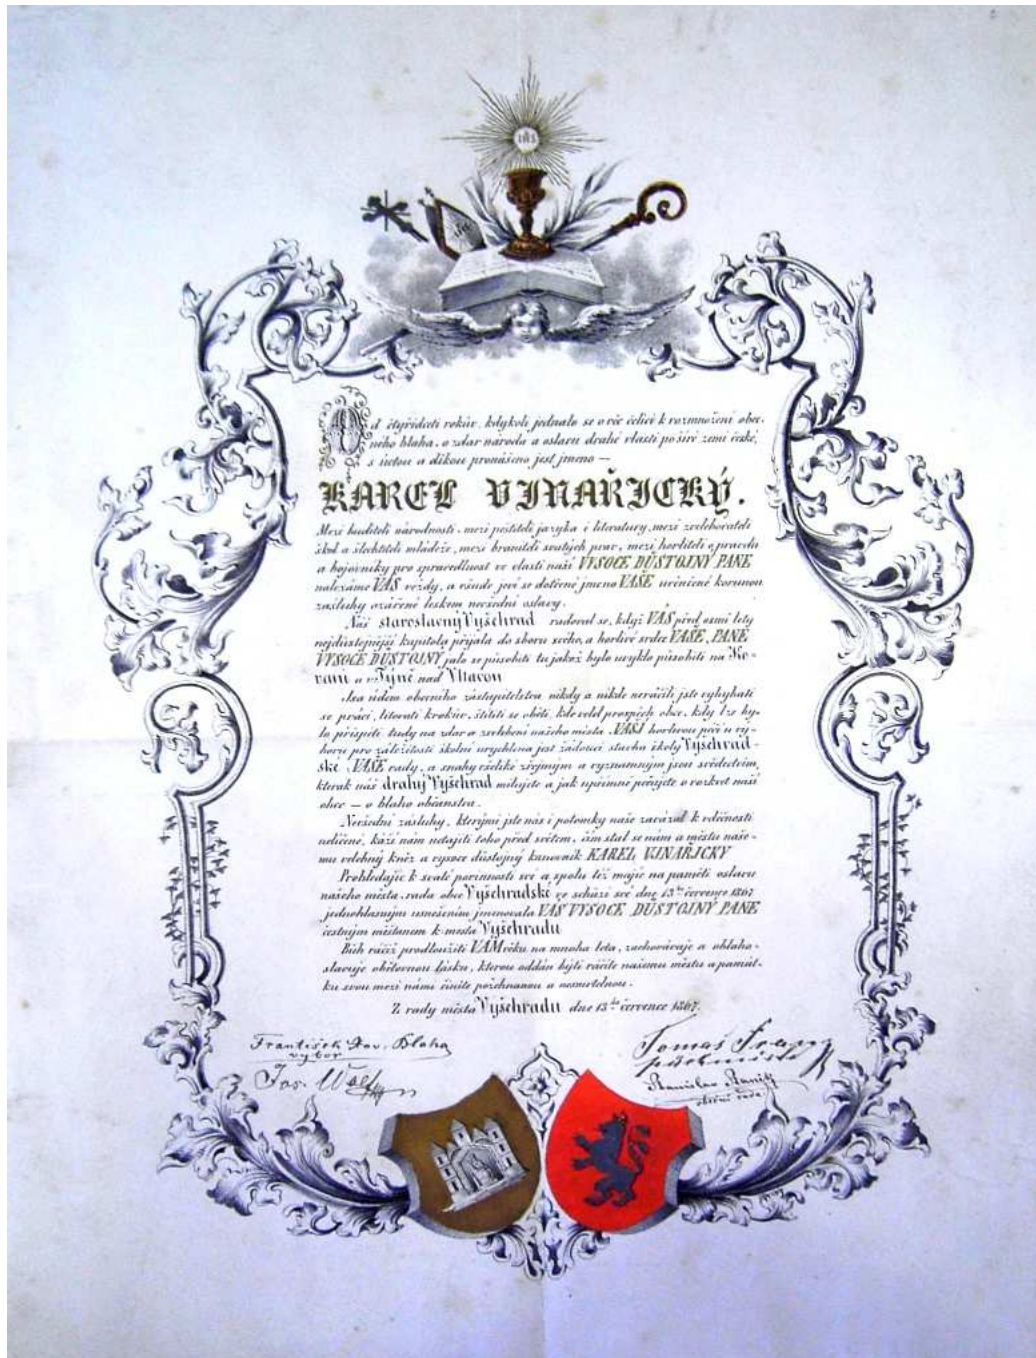 IHS
Od čtyřidceti rokův, kdykoli jednalo se o věc čelící k rozmnožení obec-
ného blaha, o zdar národa a oslavu drahé vlasti po šíré zemi české,
s úctou a díkou pronášeno jest jmeno —
KAREL VINAŘICKÝ.
Mezi buditeli národnosti, mezi pěstiteli jazyka i literatury, mezi zvelebovateli
škol a šlechtiteli mládeže, mezi braniteli svatých prav, mezi horliteli o pravdu
a bojovníky pro spravedlnost ve vlasti naší VYSOCE DŮSTOJNÝ PANE
nalezáme VÁS vězdy, a všude jeví se dotčené jmeno VAŠE věnčené korunou
zásluhy ozářené leskem nevšední oslavy.
Náš staroslavný Vyšehrad radoval se, když VÁS před osmi lety
nejdůstojnější kapitola přijala do sboru svého, a horlivé srdce VAŠE, PANE
VYSOCE DŮSTOJNÝ jalo se působiti tu jakož bylo uvyklo působiti na Ko-
vani a v Týně nad Vltavou
Jsa údem obecního zástupitelstva nikdy a nikde neráčili jste vyhýbati
se práci, litovati kroků, štítiti se oběti, kde velel prospěch obce, kdy lze by-
lo přispěti tudy na zdar a zvelebení našeho města. VAŠÍ horlivou péčí u vý-
boru pro záležitosti školní urychlena jest žádoucí stavba školy Vyšehrad-
ské. VAŠE rady, a snahy všeliké zřejmým a významným jsou svědectvím,
kterak náš drahý Vyšehrad milujete a jak upřímně pečujete o rozkvět naší
obce — o blaho občanstva.
Nevšední zásluhy, kterými jste nás i potomky naše zavázal k vděčnosti
nelíčené, káží nám netajiti toho před světem, čím stal se nám a městu naše-
mu velebný kněz a vysoce důstojný kanovník KAREL VINAŘICKÝ
Prohledajíc k svaté povinnosti své a spolu též majíc na paměti oslavu
našeho města, rada obce Vyšehradské ve schůzi své dne 13ho července 1867
jednohlasným usnešením jmenovala VÁS VYSOCE DŮSTOJNÝ PANE
čestným měšťanem k. města Vyšehradu
Bůh račiž prodloužiti VÁM věku na mnohá léta, zachovávaje a oblaho-
slavuje obětovnou lásku, kterou oddán býti ráčíte našemu městu a památ-
ku svou mezi námi činíte požehnanou a nesmrtelnou.
Z rady města Vyšehradu dne 13ho července 1867.
František Blaha
výbor
Jos. Wolf
Tomáš
purkmistr
Stanislav
obecní rada